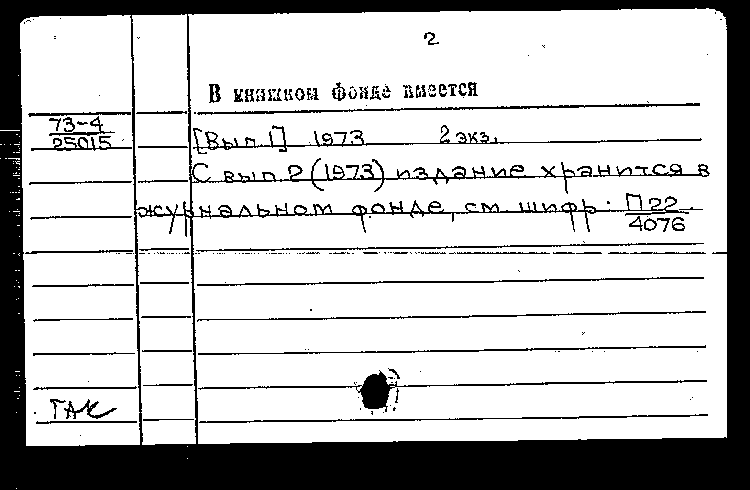 2
В книжном фонде имеется
73-4
25015
[Вып. 1] 1973 2 экз.
С вып. 2 (1973) издание хранится в
журнальном фонде, см. шифр. П22
4076
ГАК